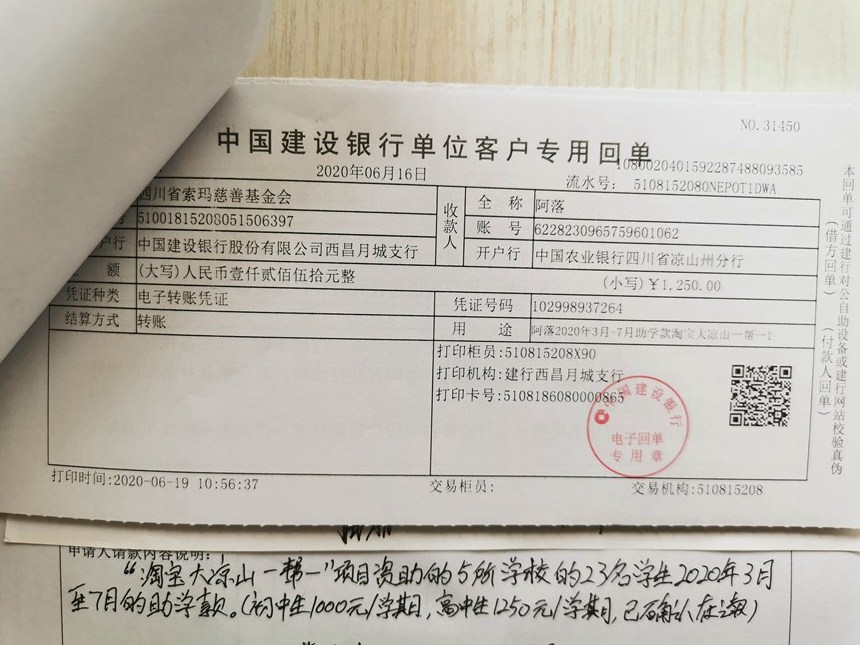 NO.31450
中国建设银行单位客户专用回单
1080020401592287488093585
2020年06月16日
流水号: 5108152080NEPOT1DWA
四川省索玛慈善基金会
全 称 阿落
号 51001815208051506397
收款人
账 号 6228230965759601062
户行 中国建设银行股份有限公司西昌月城支行
开户行 中国农业银行四川省凉山州分行
额 (大写)人民币壹仟贰佰伍拾元整 (小写)￥1,250.00
凭证种类 电子转账凭证 凭证号码 102998937264
结算方式 转账 用 途 阿落2020年3月-7月助学款淘宝大凉山一帮一1
打印柜员:510815208X90
打印机构:建行西昌月城支行
打印卡号:5108186080000865
中国建设银行
电子回单
专用章
打印时间:2020-06-19 10:56:37 交易柜员: 交易机构:510815208
本回单可通过建行对公自助设备或建行网站校验真伪
(借方回单)
(付款人回单)
申请人请款内容说明:
“淘宝大凉山一帮一”项目资助的5所学校的23名学生2020年3月
至7月的助学款。(初中生1000元/学期,高中生1250元/学期,已确认在读)